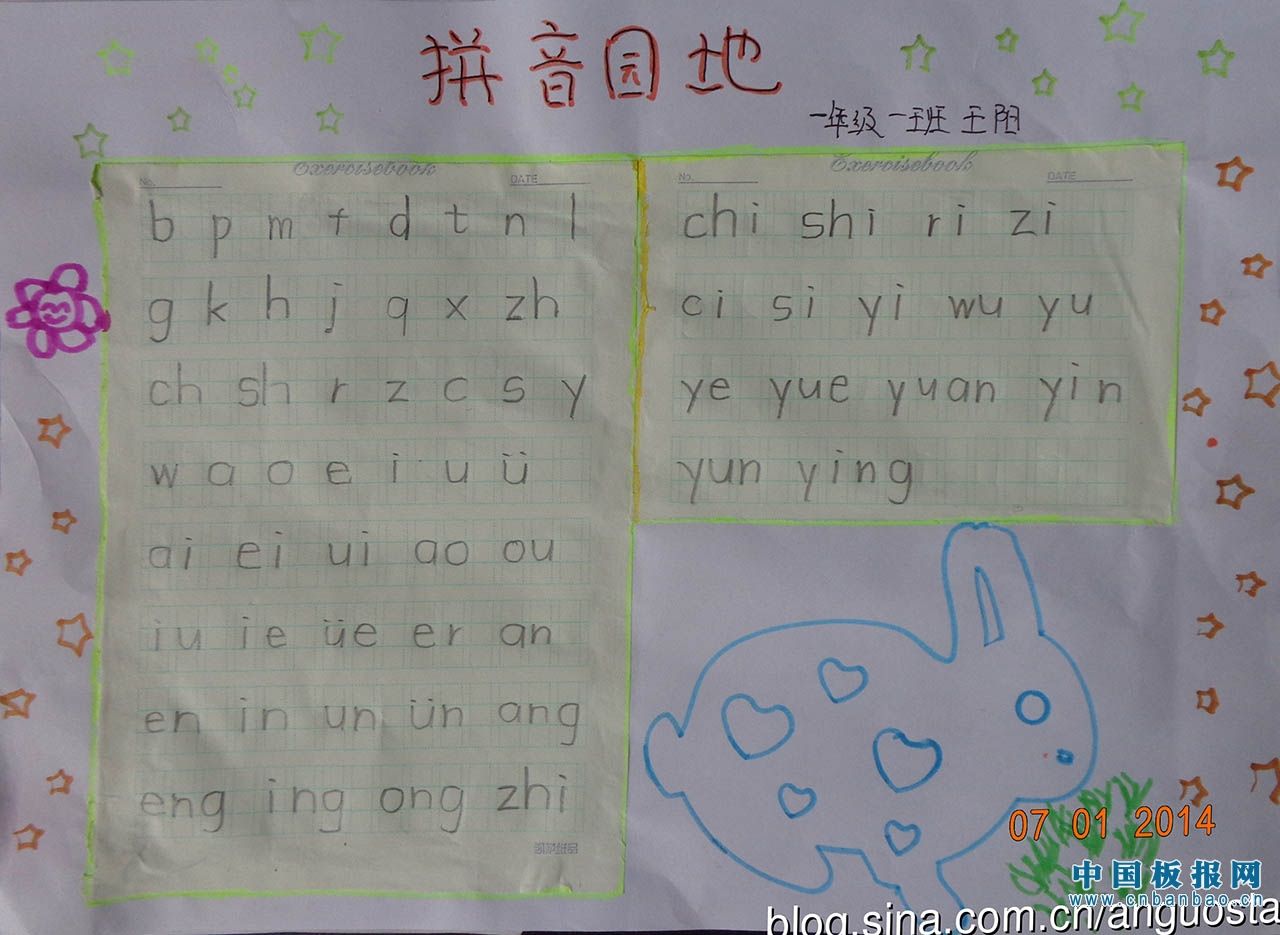 拼音园地
一年级一班 王阳
Exercisebook
No. DATE
b p m f d t n l
g k h j q x zh
ch sh r z c s y
w a o e i u ü
ai ei ui ao ou
iu ie üe er an
en in un ün ang
eng ing ong zhi
Exercisebook
No. DATE
chi shi ri zi
ci si yi wu yu
ye yue yuan yin
yun ying
07 01 2014
中国板报网
www.cnbanbao.cn
blog.sina.com.cn/anguosta